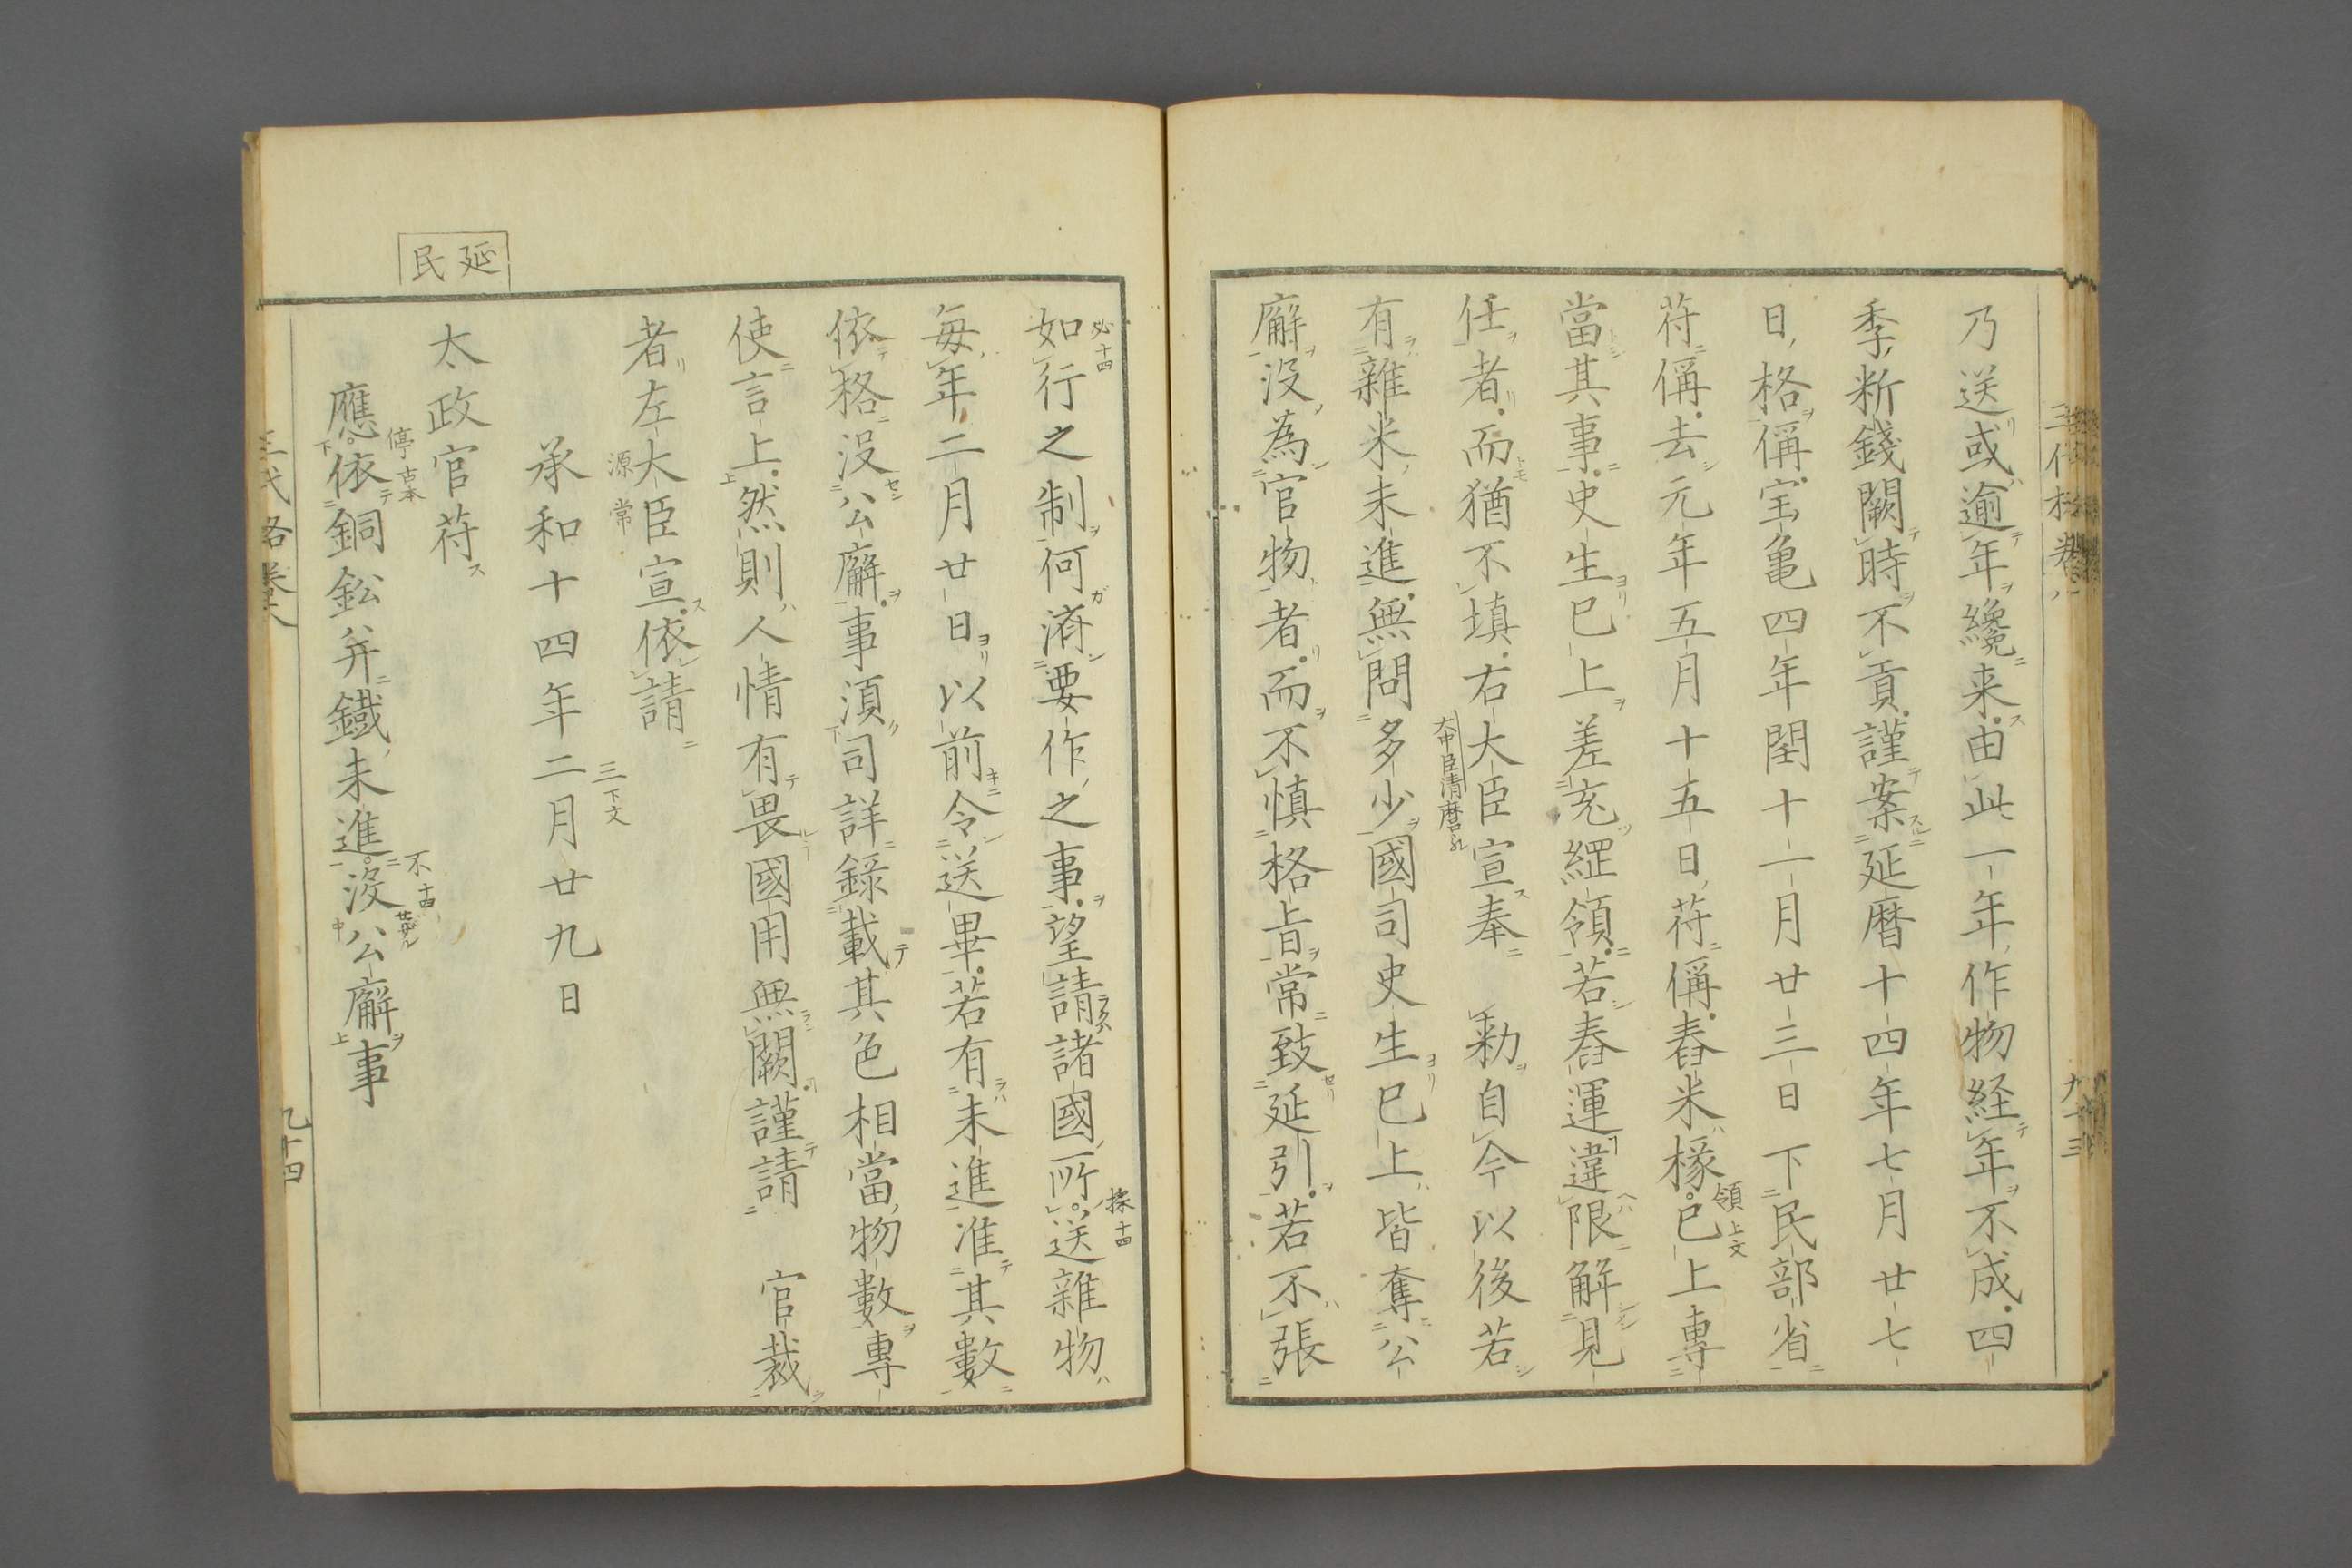 乃送或逾年纔来由此一年作物経年不成四
季断錢闕時不貢謹案延暦十四年七月廿七
日格偁宝亀四年閏十一月廿三日下民部省
苻偁去元年五月十五日苻偁舂米椽已上専
領上文
當其事史生已上差充綱領若舂運違限解見
任者而猶不填右大臣宣奉　勅自今以後若
大中臣清麿
有雜米未進無問多少國司史生已上皆奪公
廨没為官物者而不慎格旨常致延引若不張
三代格巻八
九十三
如行之制何済要作之事望請諸國所送雜物
必十四
採十四
毎年二月廿日以前令送畢若有未進准其數
依格没公廨事須司詳録載其色相當物數専
使言上然則人情有畏國用無闕謹請　官裁
者左大臣宣依請
源常
承和十四年二月廿九日
三下文
延民
太政官苻
應依銅鈆并鐵未進没公廨事
停古本
不十四
三代格巻八
九十四